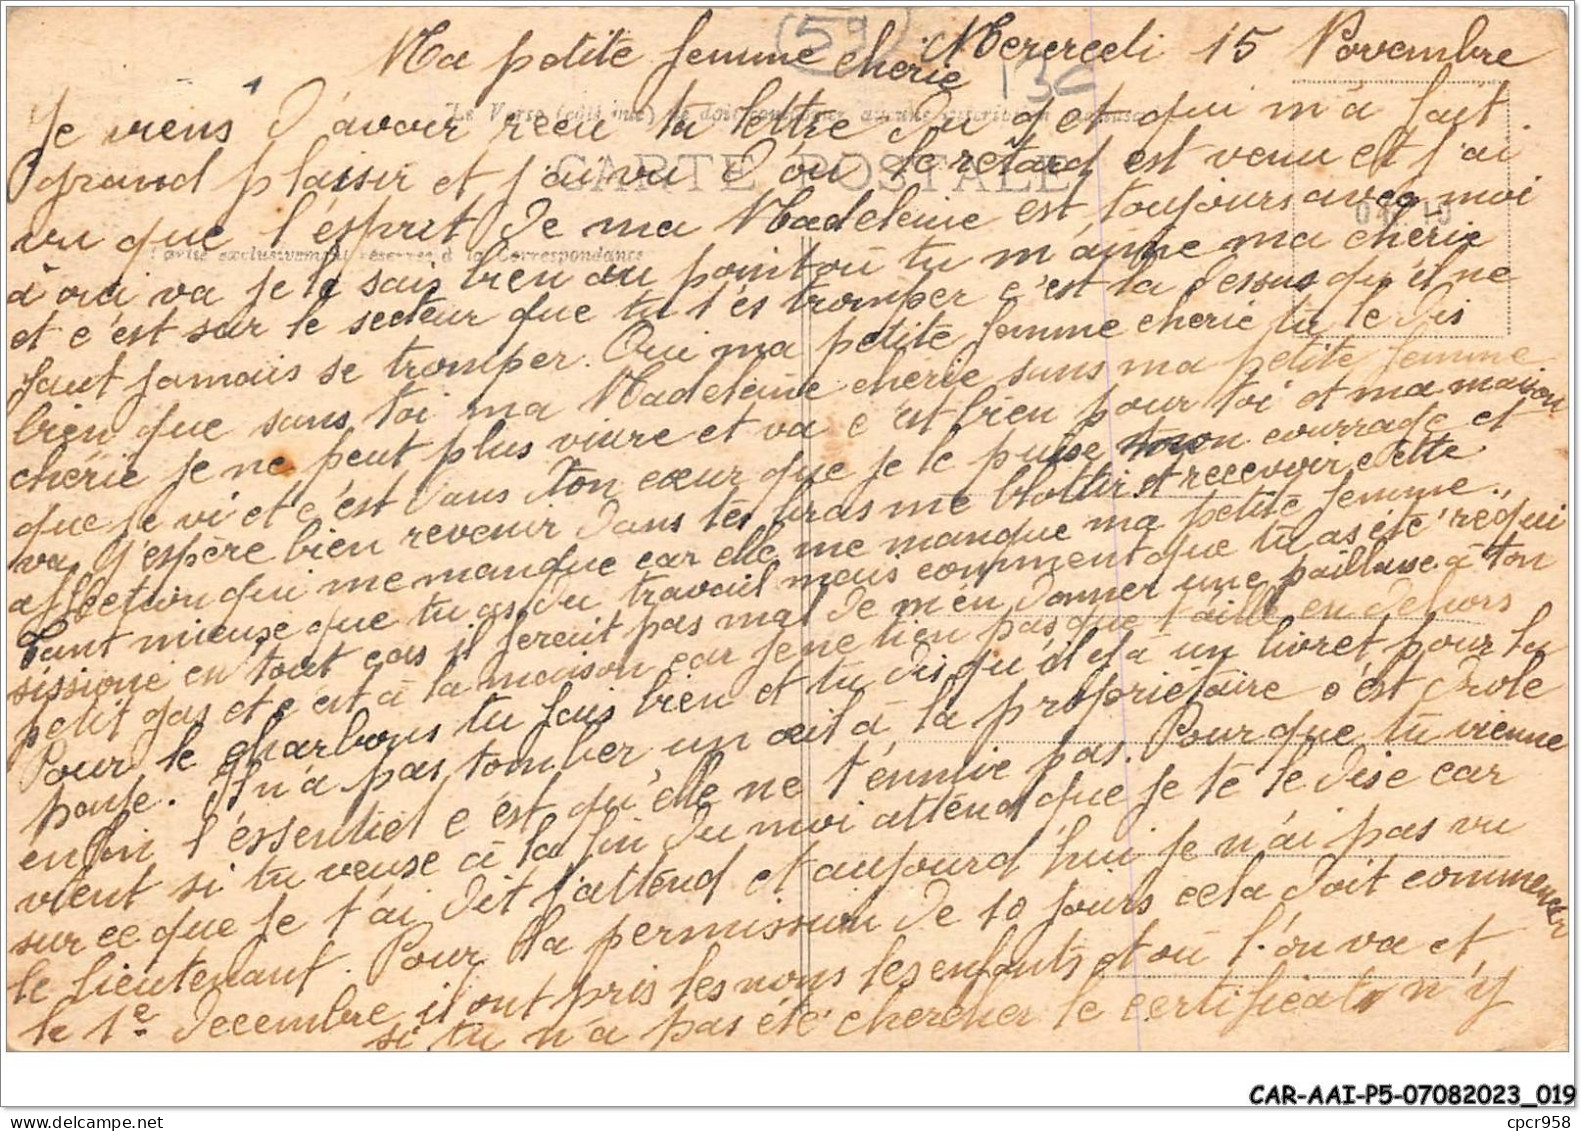 (59)
Mercredi 15 Novembre
Ma petite femme cherie
136
Je viens d'avoir reçu ta lettre du 9 et qui m'a fait
CARTE POSTALE
grand plaisir et j'ai vu d'ou le retard est venu et j'ai
vu que l'esprit de ma Madeleine est toujours avec moi
Partie exclusivement réservée à la Correspondance
à oui va je le sais bien au point où tu m'aime ma chérie
et c'est sur le secteur que tu t'es tromper c'est la dessus qu'il ne
faut jamais se tromper. Oui ma petite femme cherie tu le dis
bien que sans toi ma Madeleine cherie sans ma petite femme
chérie je ne peut plus vivre et va c'est bien pour toi et ma maison
que je vi et c'est dans ton cœur que je le puise mon courrage et
va j'espère bien revenir dans tes bras me blottir et recevoir cette
affection qui me manque car elle me manque ma petite femme.
Tant mieuse que tu as du travail mais comment que tu as été réqui
sissioné en tout cas il ferait pas mal de m'en donner une paillasse à ton
petit gas et c'est à la maison car je ne tien pas que t'aille en dehors
Pour le charbons tu fais bien et tu dis qu'il y a un livret pour la
paye. Il n'a pas tomber un œil à la propriétaire c'est drole
enfin l'éssentiel c'est qu'elle ne t'ennuie pas. Pour que tu vienne
vient si tu veuse à la fin du moi attend que je te le dise car
sur ce que je t'ai dit j'attend et aujourd'hui je n'ai pas vu
le lieutenant. Pour la permission de 10 jours cela doit commencer
le 1e decembre il ont pris les noms les enfants et où l'on va et
si tu n'a pas été chercher le certificat n'y
CAR-AAI-P5-07082023_019
www.delcampe.net
cpcr958